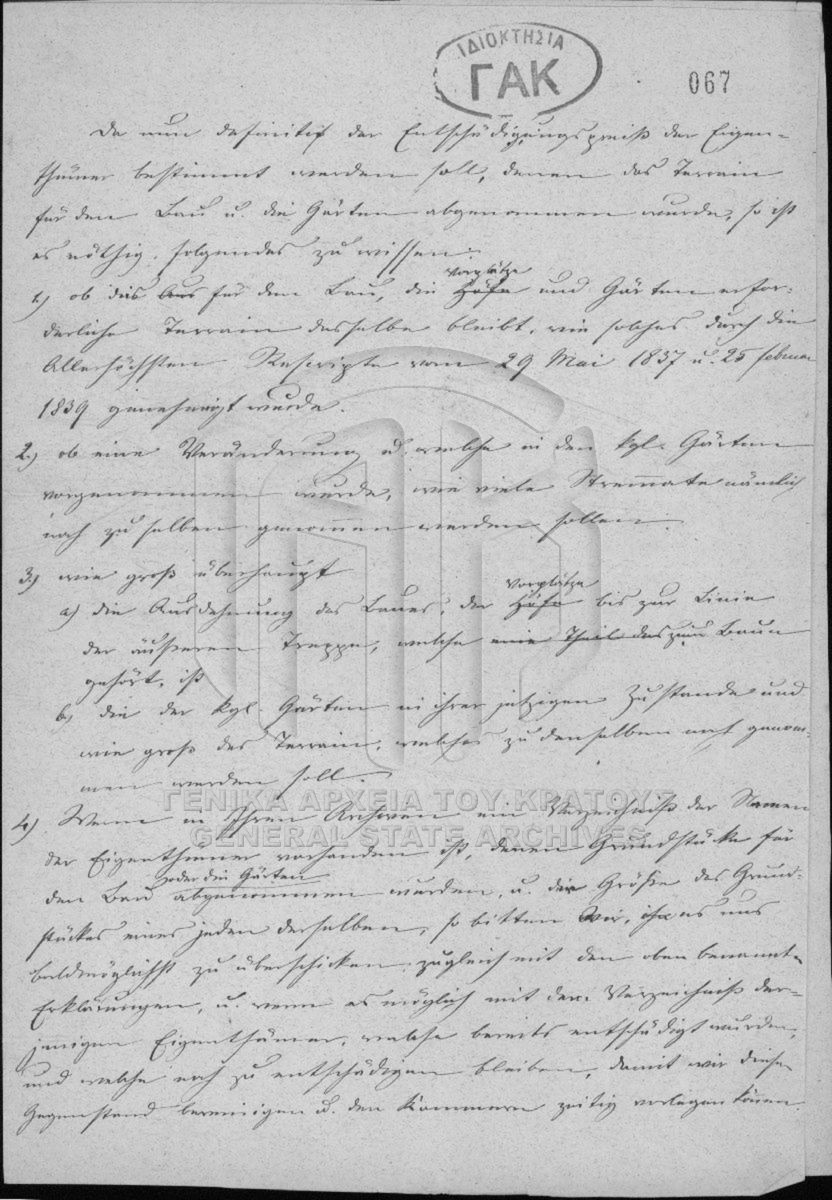 ΙΔΙΟΚΤΗΣΙΑ
ΓΑΚ
067
Da nun definitif der Entschädigungspreiß der Eigen-
thümer bestimmt werden soll, denen das Terrain
für den Bau u. die Gärten abgenommen wurde, so ist
es nöthig, folgendes zu wissen:
1.) ob das Aus für den Bau, die Höfe Vorplätze und Gärten erfor-
derliche Terrain dasselbe bleibt, wie solches durch die
Allerhöchsten Rescripte vom 29 Mai 1837 u. 25 Februar
1839 genehmigt wurde.
2.) ob eine Veränderung u. welche in den kgl. Gärten
vorgenommen wurde, wie viele Stremmate nämlich
noch zu selben genommen werden sollen.
3.) wie groß überhaupt
a) die Ausdehnung des Baues, der Höfe Vorplätze bis zur Linie
der äußeren Treppe, welche eine Theil des zum Baue
gehört, ist
b) die der kgl. Gärten in ihrer jetzigen Zustande und
wie groß das Terrain, welches zu denselben noch genom-
men werden soll.
ΓΕΝΙΚΑ ΑΡΧΕΙΑ ΤΟΥ ΚΡΑΤΟΥΣ
GENERAL STATE ARCHIVES
4.) Wenn in Ihren Archiven ein Verzeichniß der Namen
der Eigenthümer vorhanden ist, denen Grundstücke für
den Bau oder die Gärten abgenommen wurden, u. die Größe des Grund-
stückes eines jeden derselben, so bitten Wir, es uns
baldmöglichst zu überschicken zugleich mit den oben benannten
Erklärungen, u. wenn es möglich mit dem Verzeichniß der-
jenigen Eigenthümer, welche bereits entschädigt wurden,
und welche noch zu entschädigen bleiben, damit wir diesen
Gegenstand bereinigen u. den Kammern zeitig vorlegen können.